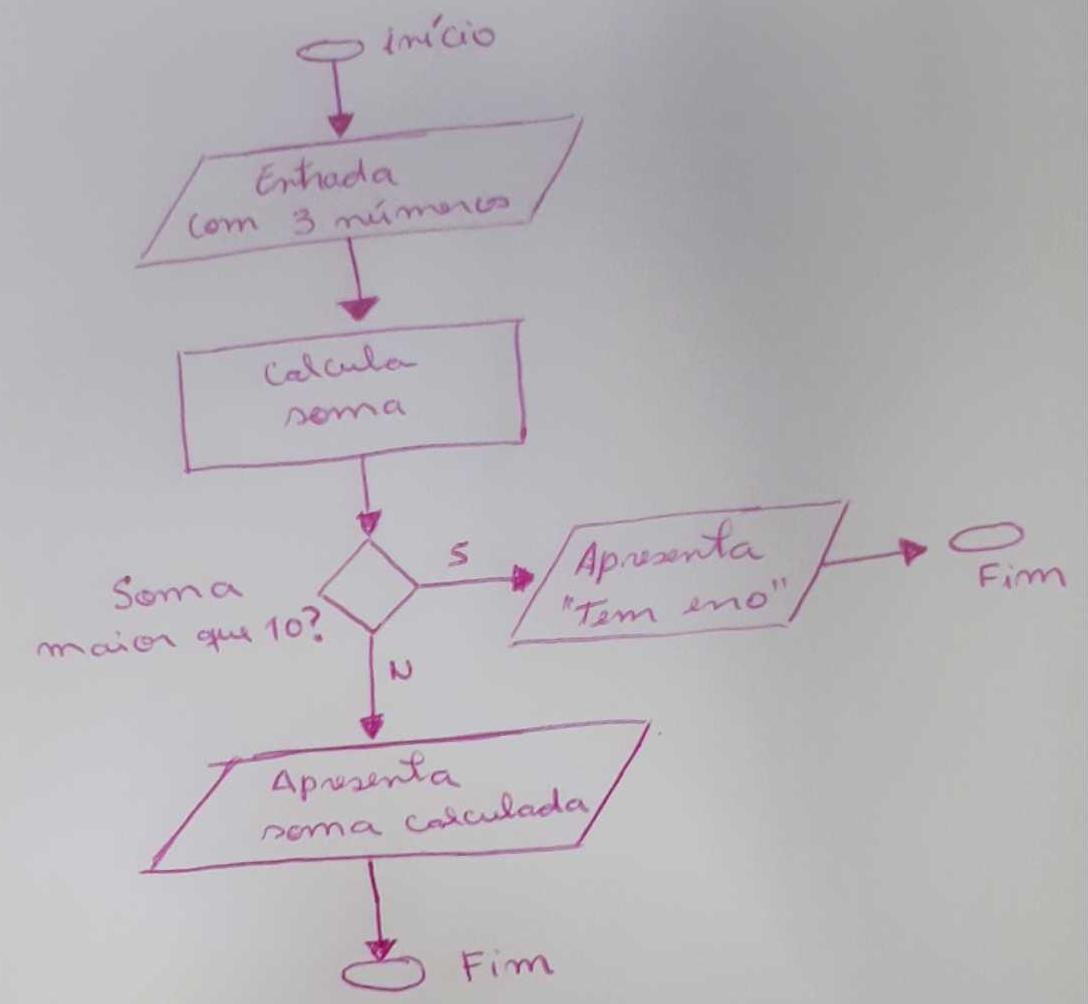 início
Entrada
com 3 números
Calcula
soma
Soma
maior que 10?
S
Apresenta
"Tem erro"
Fim
N
Apresenta
soma calculada
Fim